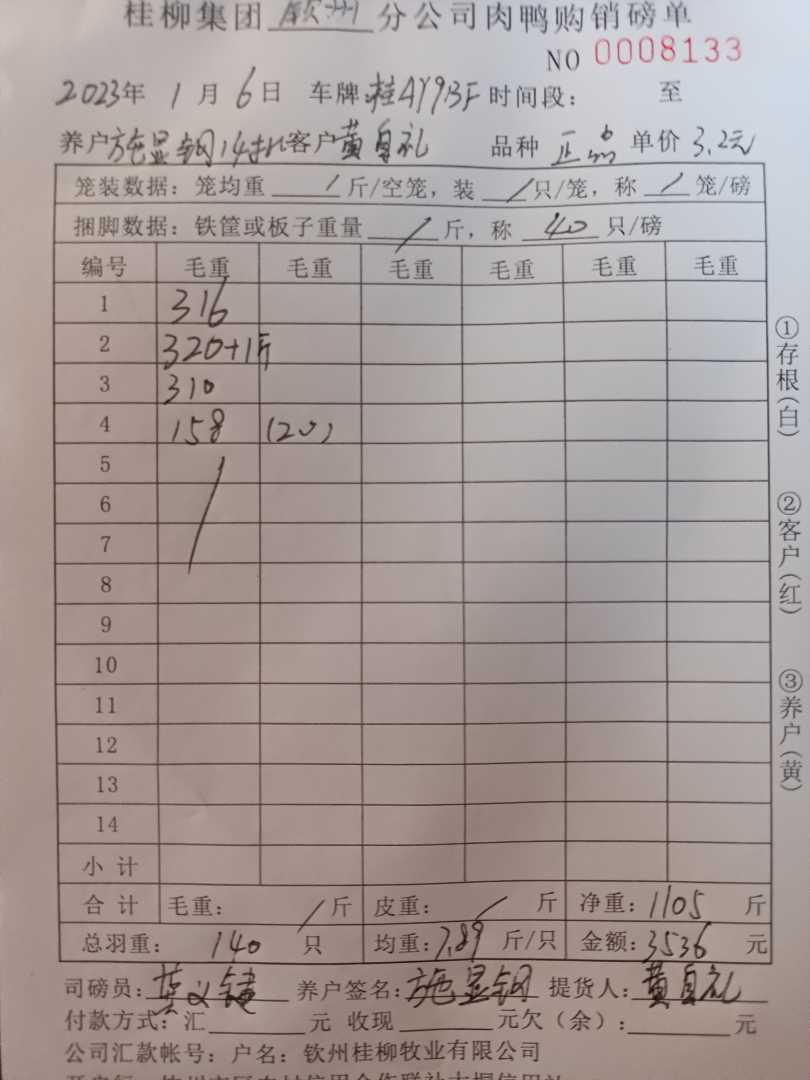 桂柳集团 钦州 分公司肉鸭购销磅单
NO 0008133
2023年 1月 6日 车牌:桂AY9B5F 时间段: 至
养户 施显钢14批 客户 黄自礼 品种 正品 单价 3.2元
笼装数据: 笼均重 / 斤/空笼, 装 / 只/笼, 称 / 笼/磅
捆脚数据: 铁筐或板子重量 / 斤, 称 40 只/磅
编号 毛重 毛重 毛重 毛重 毛重 毛重
1 316
2 320+1斤
3 310
4 158 (20)
5
6
7
8
9
10
11
12
13
14
小 计
合 计 毛重: / 斤 皮重: / 斤 净重: 1105 斤
总羽重: 140 只 均重: 7.89 斤/只 金额: 3536 元
司磅员: 莫义 养户签名: 施显钢 提货人: 黄自礼
付款方式: 汇 元 收现 元欠(余): 元
公司汇款帐号: 户名: 钦州桂柳牧业有限公司
①存根(白)
②客户(红)
③养户(黄)